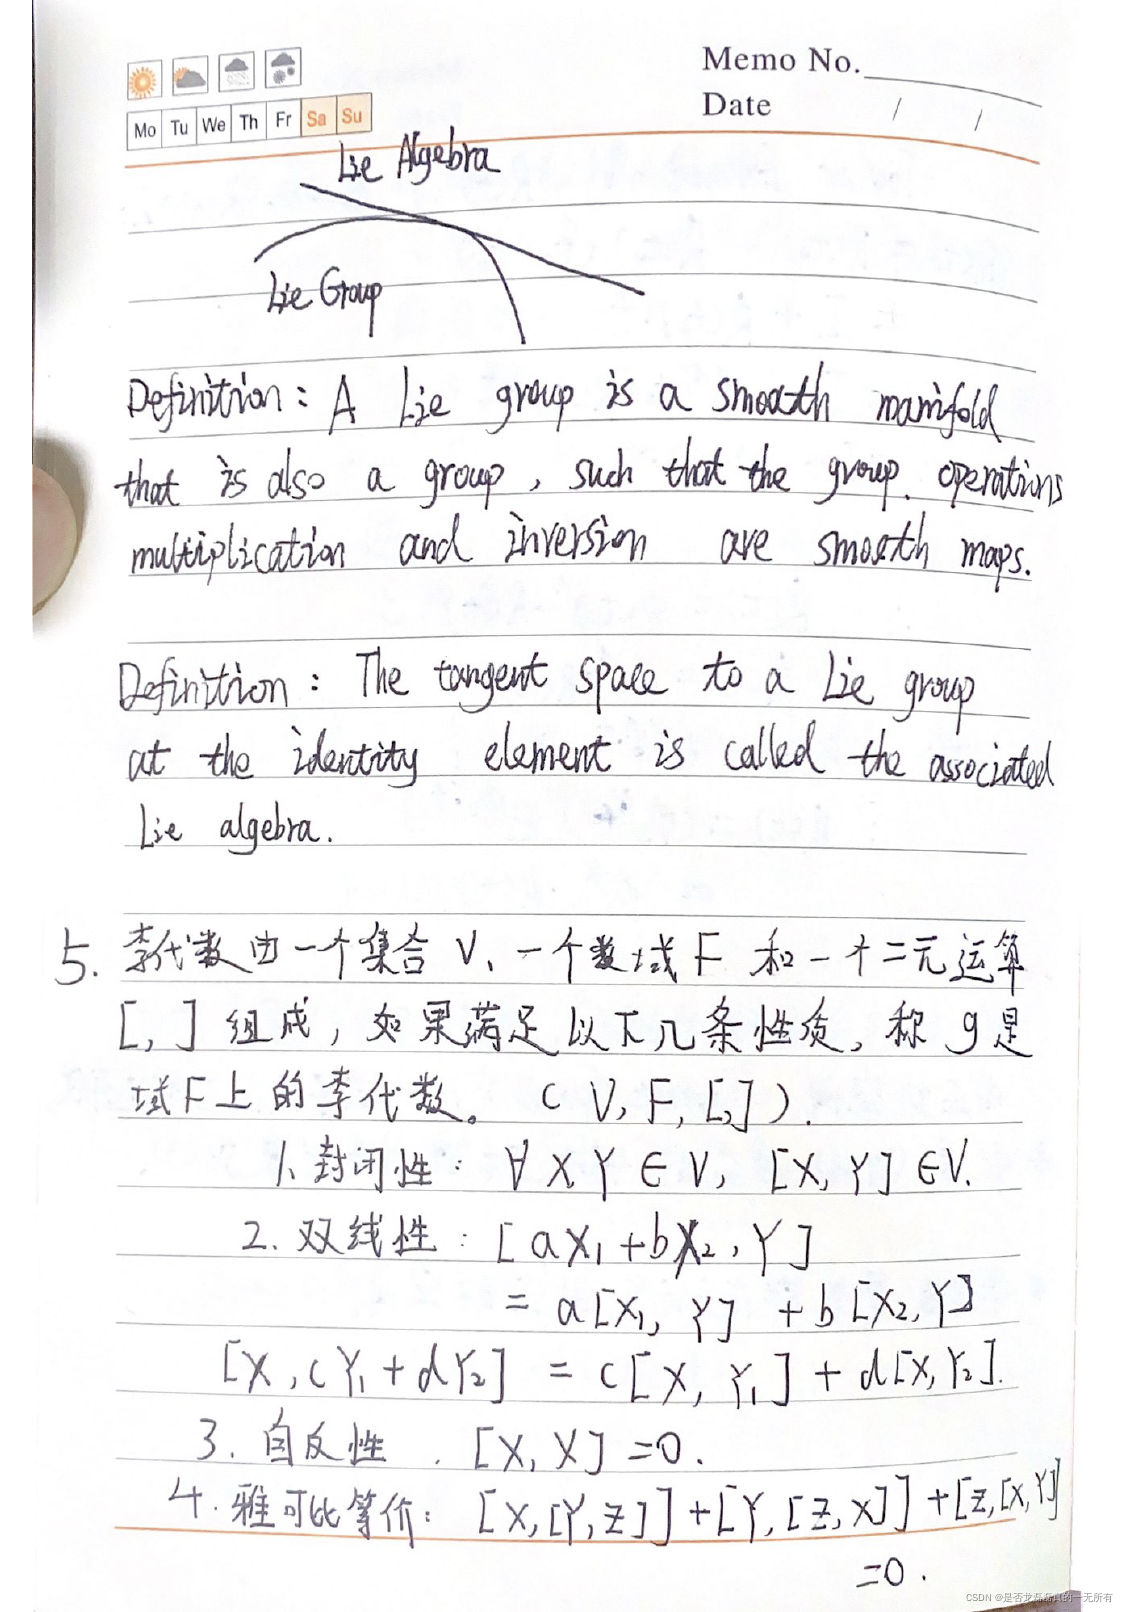 Memo No.
Date / /
Mo Tu We Th Fr Sa Su
Lie Algebra
Lie Group
Definition: A Lie group is a smooth manifold
that is also a group, such that the group. operations
multiplication and inversion are smooth maps.
Definition: The tangent space to a Lie group
at the identity element is called the associated
Lie algebra.
5. 李代数由一个集合 V、一个数域 F 和一个二元运算
[,] 组成, 如果满足以下几条性质, 称 g 是
域F上的李代数。 (V, F, [,]).
1、封闭性: ∀ X, Y ∈ V, [X, Y] ∈V.
2. 双线性: [aX₁+bX₂, Y]
= a[X₁, Y] + b[X₂, Y]
[X, cY₁+dY₂] = c[X, Y₁] + d[X, Y₂].
3. 自反性. [X, X] =0.
4. 雅可比等价: [X,[Y,Z]]+[Y,[Z,X]]+[Z,[X,Y]]
=0.